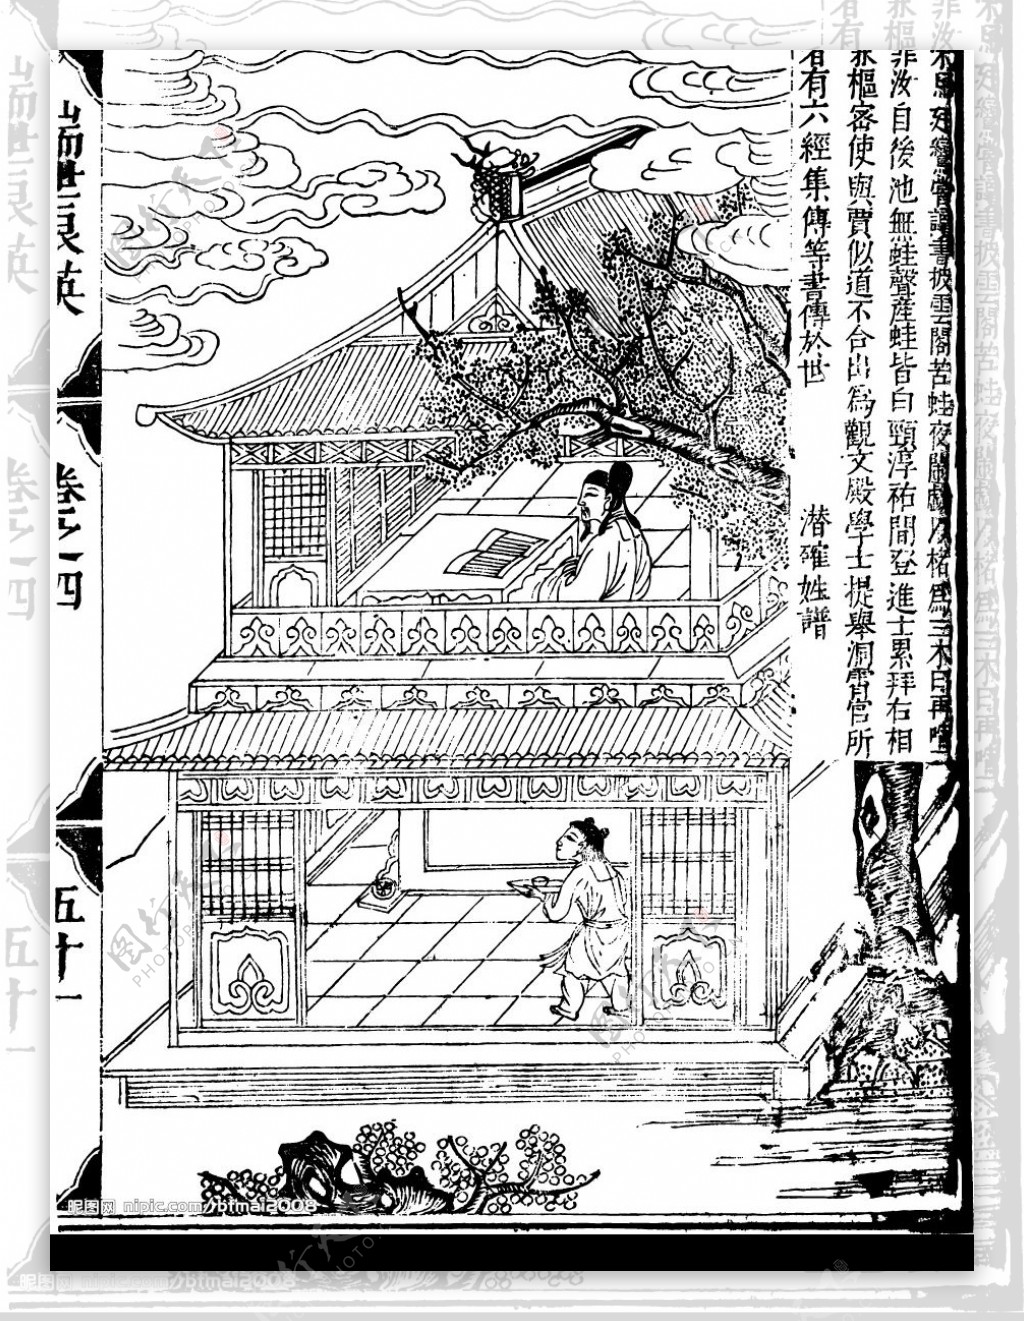 廷鸞嘗讀書披雲閣苦蛙夜鬧戲以楮為三木曰再喧
罪汝自後池無蛙聲產蛙皆白頸淳祐間登進士累拜右相
兼樞密使與賈似道不合出為觀文殿學士提舉洞霄宮所
著有六經集傳等書傳於世 潜確姓譜
瑞世良英
卷之四
五十一
昵图网 nipic.com/btmai2008